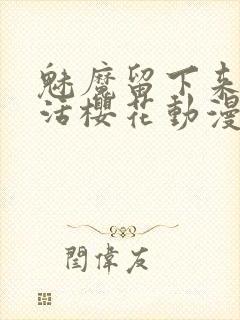 魅魔留下来
活櫻花動漫
閏偉友